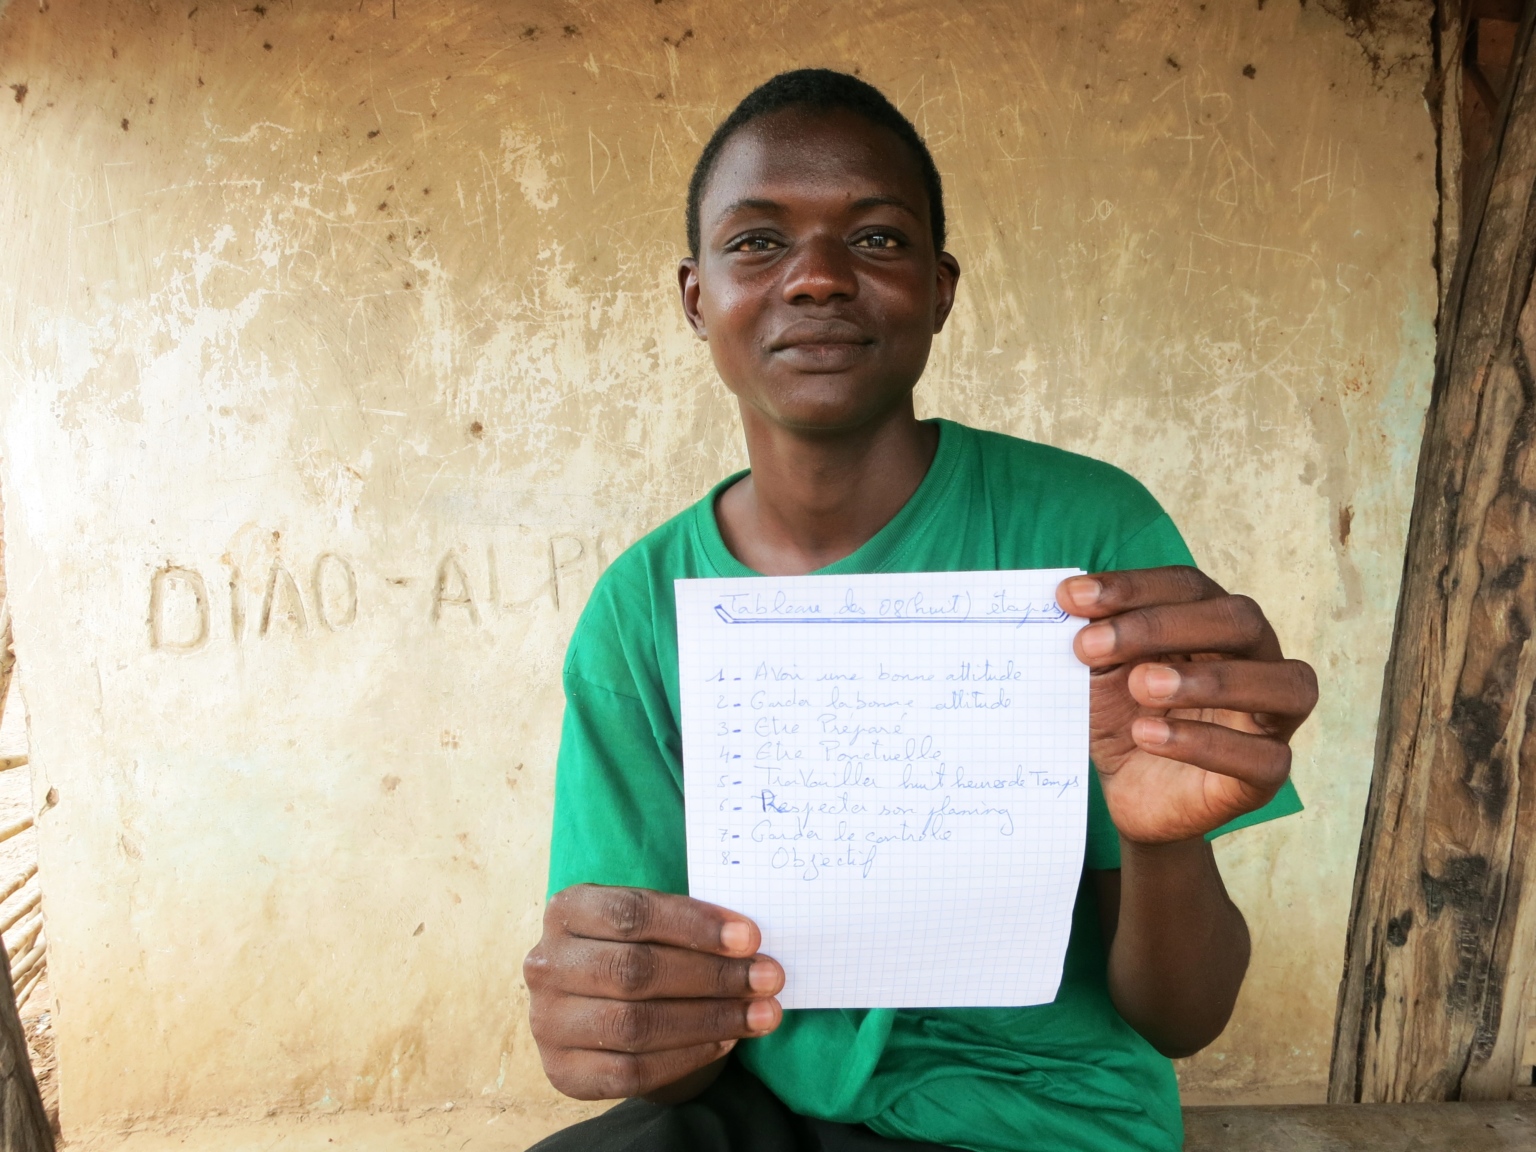 DIAO - ALP
Tableau des 08(huit) étapes
1- Avoir une bonne attitude
2- Garder la bonne attitude
3- Etre Préparé
4- Etre Ponctuelle
5- Travailler huit heures de Temps
6- Respecter son planing
7- Garder le contrôle
8- Objectif